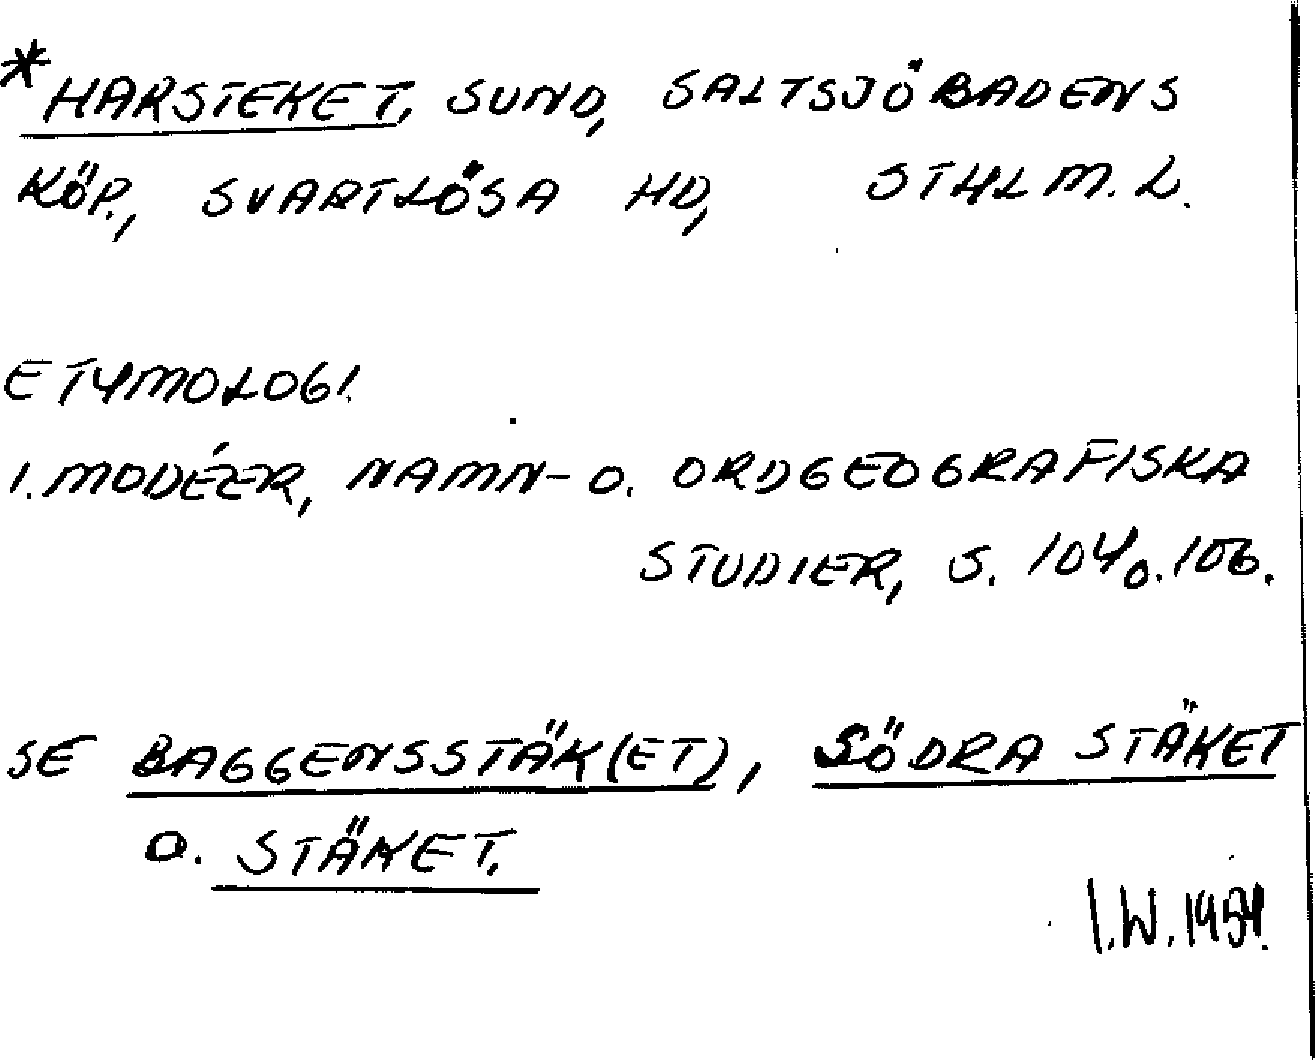 *HARSTEKET, SUND, SALTSJÖBADENS
KÖP., SVARTLÖSA HD, STHLM. L.
ETYMOLOGI.
I. MODÉER, NAMN- O. ORDGEOGRAFISKA
STUDIER, S. 104 o. 106.
SE BAGGENSSTÄK(ET), SÖDRA STÄKET
O. STÄKET.
I.W. 1954.